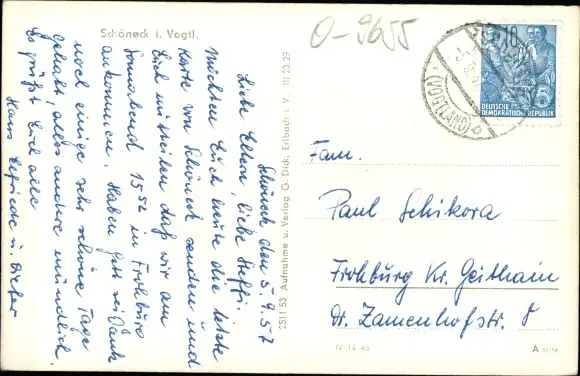 Schöneck i. Vogtl.
O-9655
Schöneck den 5.9.57
Liebe Eltern, liebe Steffi!
Möchten Euch heute die letzte
Karte von Schöneck senden und
Euch mitteilen daß wir am
Sonnabend 15⁵² in Frohburg
ankommen. Haben Gott sei Dank
noch einige sehr schöne Tage
gehabt, alles andere mündlich.
Es grüßt Euch alle
Hans u. Dieter
2511 53 Aufnahme u. Verlag G. Dick, Erlbach i. V. III 23 29
10
(VOGTLAND)
DEUTSCHE
DEMOKRATISCHE REPUBLIK
Fam.
Paul Schikora
Frohburg Kr. Geithain
Dr. Zamenhofstr. 8
IV-14-45